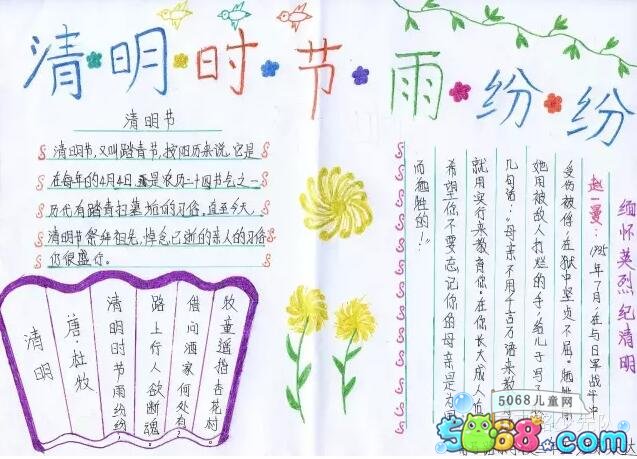 清明时节雨纷纷
清明节
清明节,又叫踏青节,按阳历来说,它是
在每年的4月4日,是农历二十四节气之一
历代有踏青扫墓 的习俗,直至今天,
清明节祭拜祖先,悼念已逝的亲人的习俗
仍很盛行。
清明
唐·杜牧
清明时节雨纷纷
路上行人欲断魂
借问酒家何处有
牧童遥指杏花村
缅怀英烈纪清明
赵一曼:1935年7月,在与日军战斗中
受伤被俘,在狱中坚贞不屈。牺牲
她用被敌人打烂的手,给儿子写
几句话:母亲不用千言万语来教
就用实行来教育你。在你长大成人
希望你不要忘记你的母亲是为
而牺牲的!"
5068儿童网
5068.com